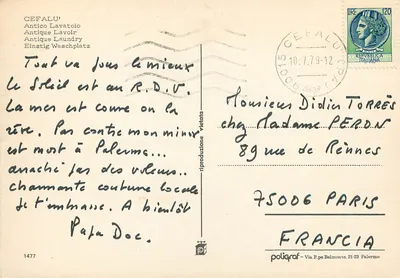 CEFALU'
Antico Lavatoio
Antique Lavoir
Antique Laundry
Einstig Waschplätz
Tout va pour le mieux
le Soleil est au R.D.V.
La mer est comme on la
rêve. Par contre mon minox
est mort à Palerme...
arraché par des voleurs..
charmante coutume locale
Je t'embrasse. A bientôt
Papa Doc.
1477
riproduzione vietata
LIRE 120
CEFALU'
10.7.79-12
Monsieur Didier TORRÈS
chez Madame PERON
89 rue de Rennes
75006 PARIS
FRANCIA
poligraf - Via P.pe Belmonte, Palermo